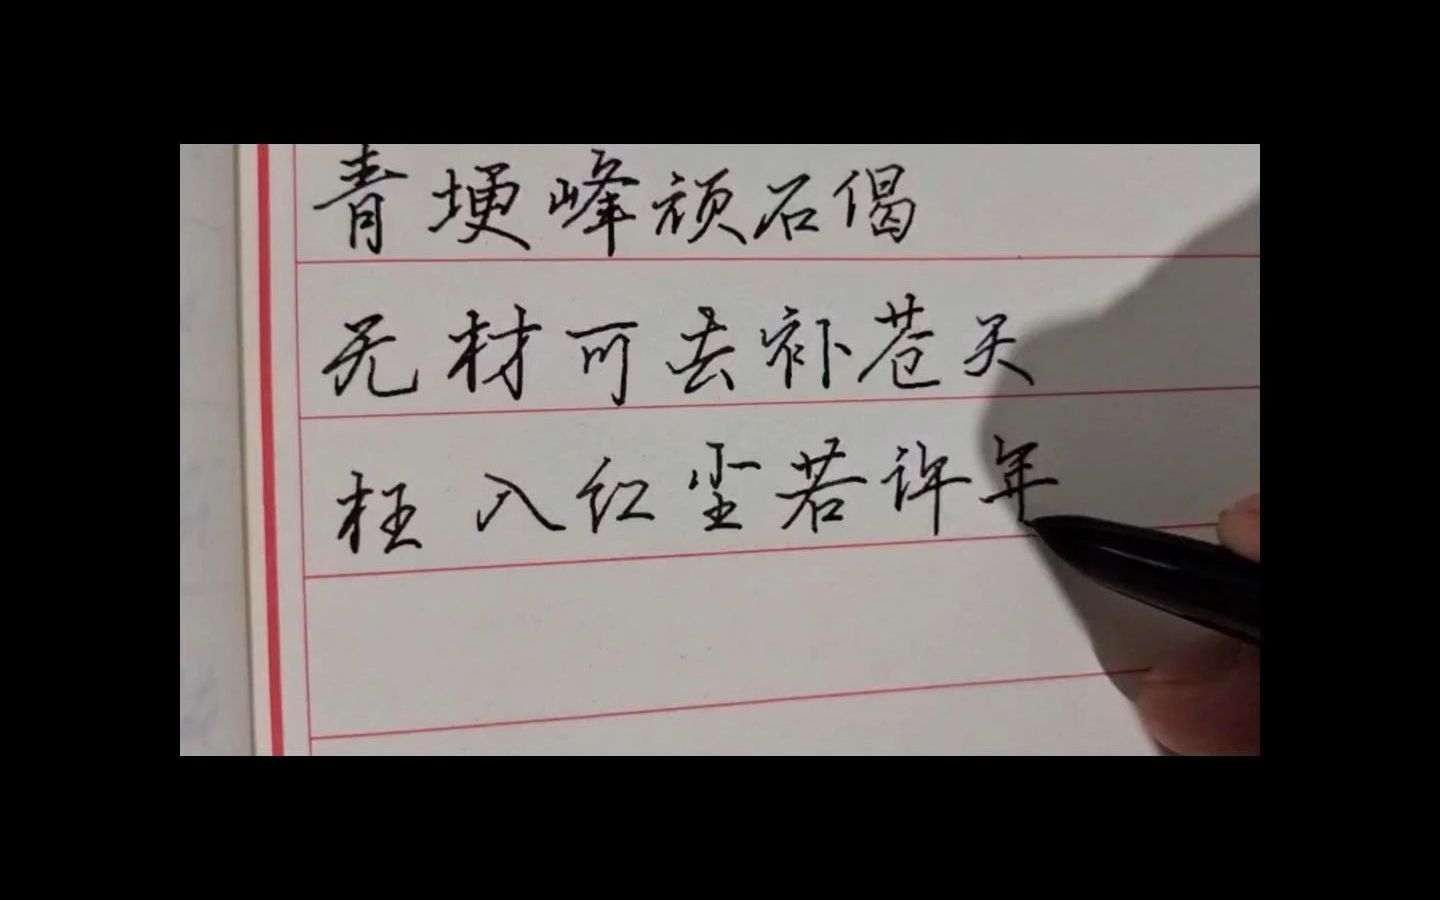 青埂峰顽石偈
无材可去补苍天
枉入红尘若许年